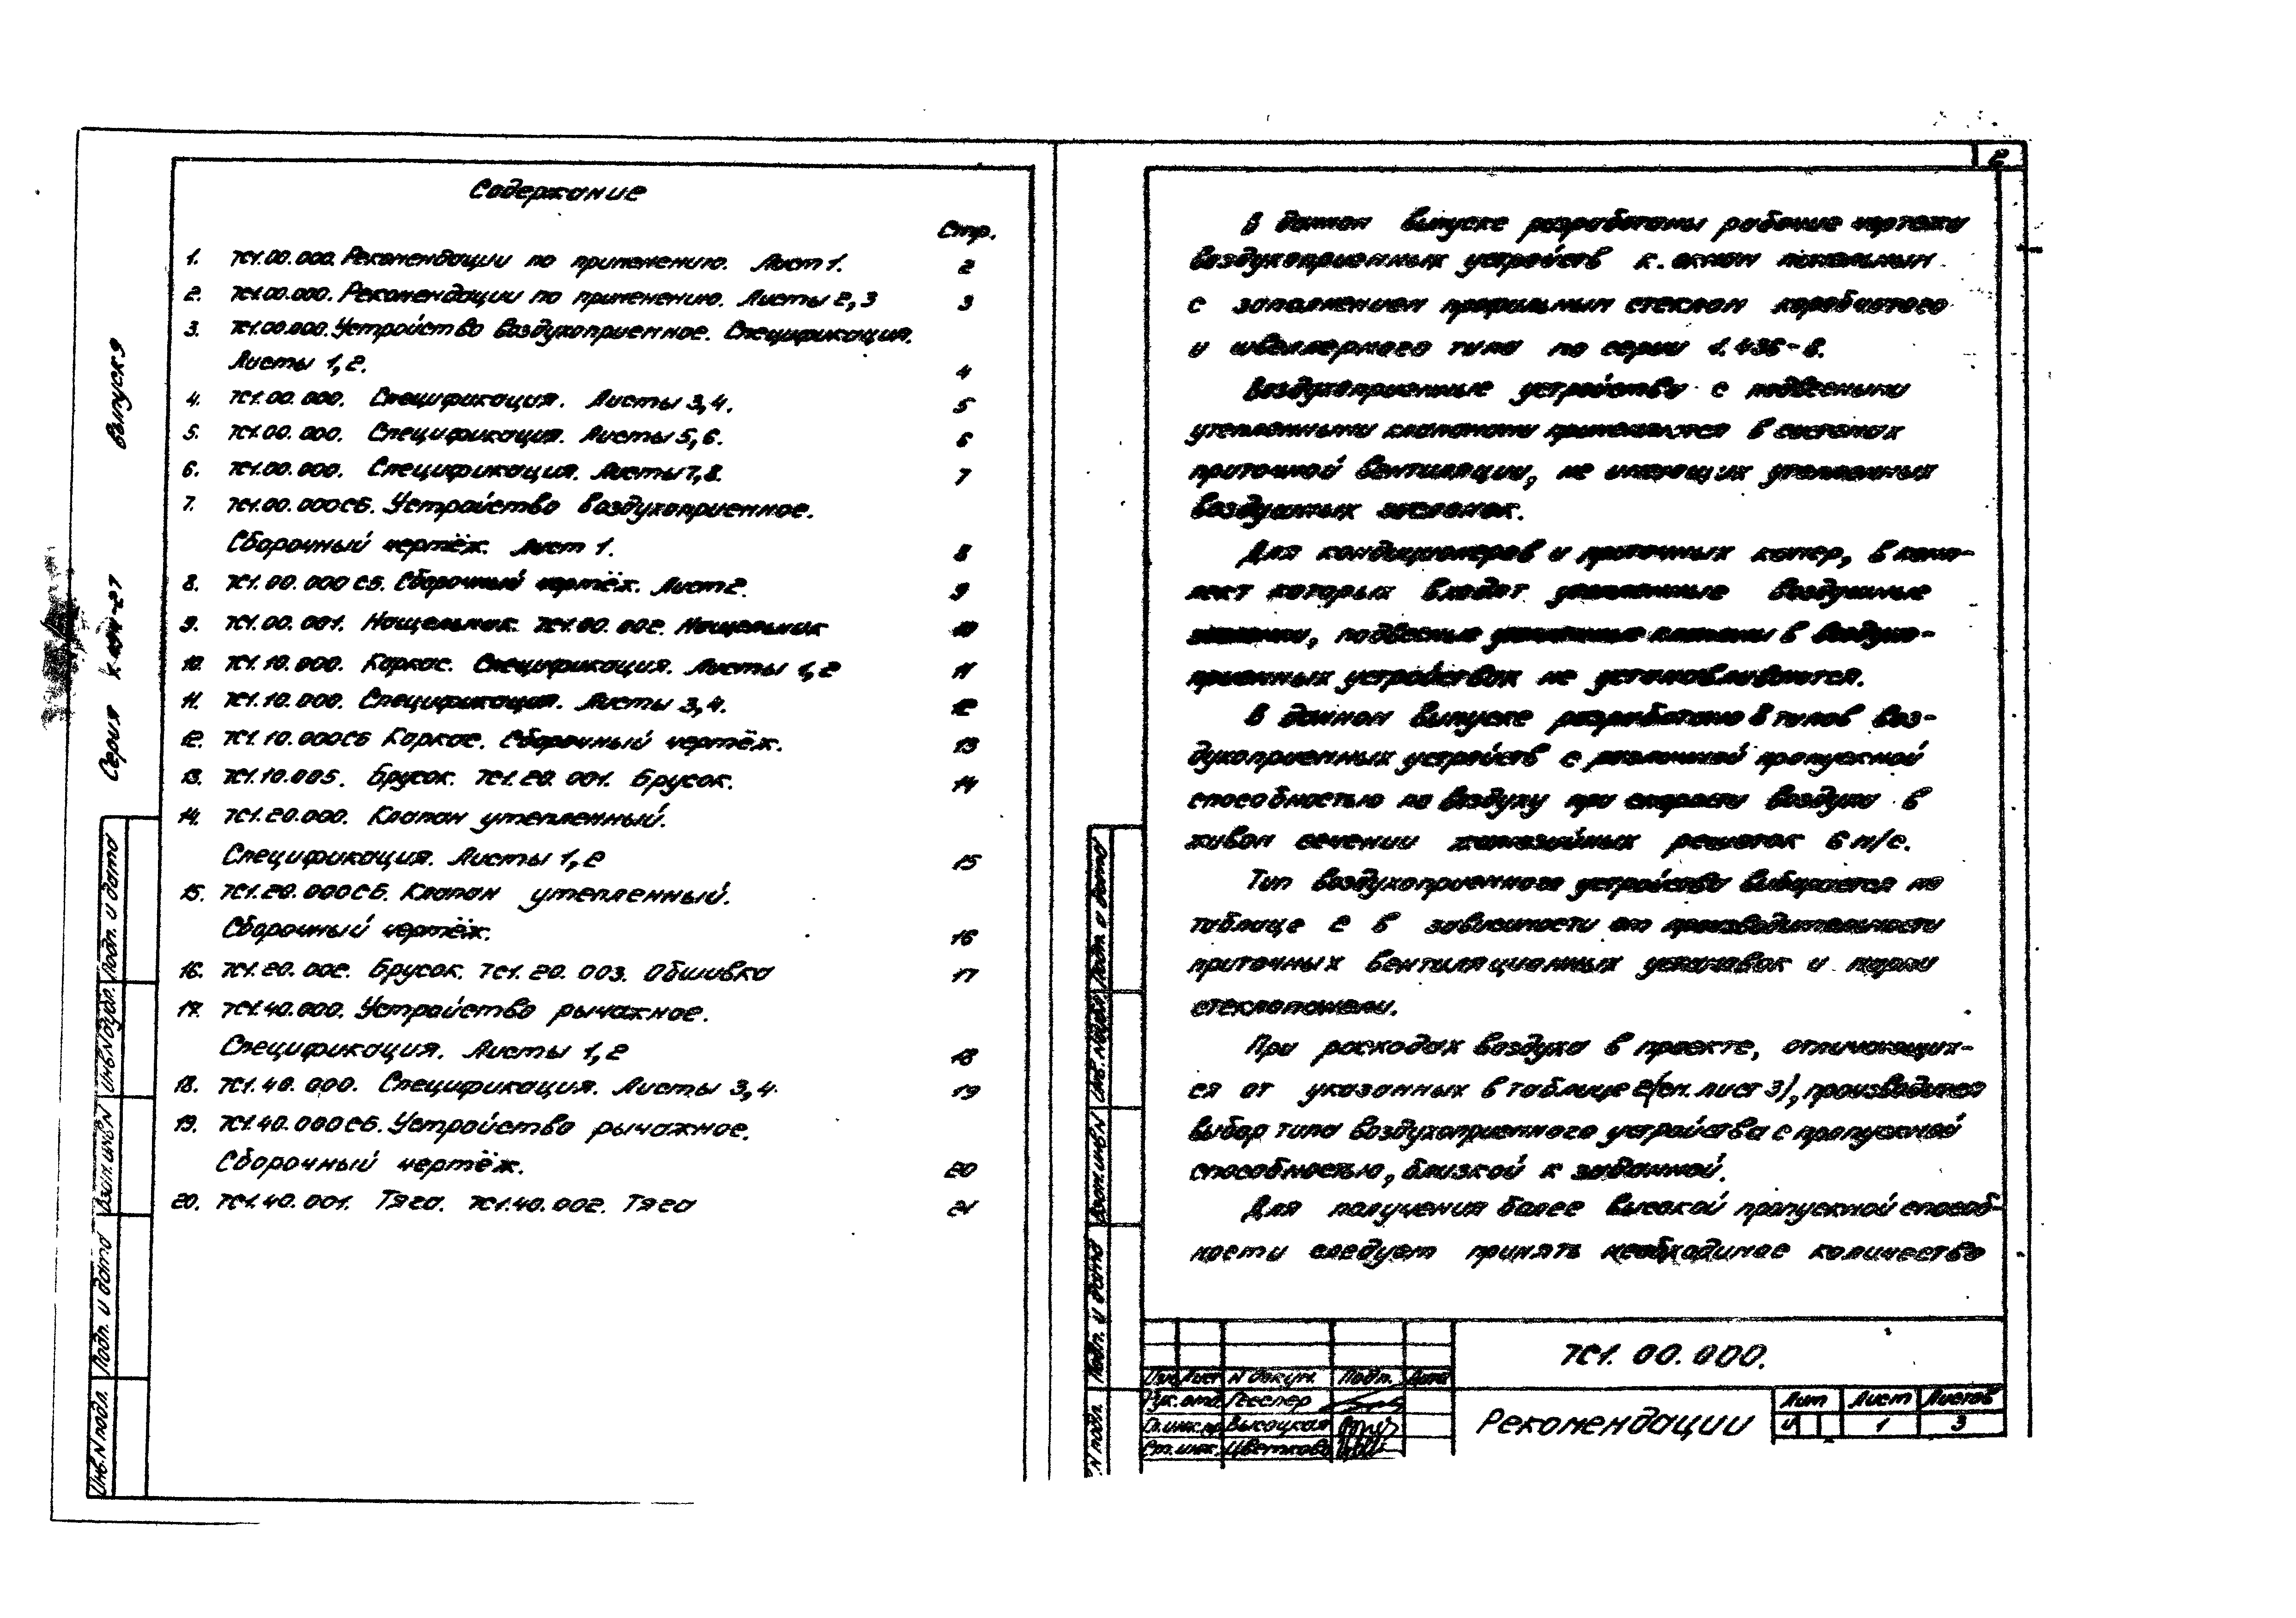 Содержание
Стр.
1. 7С1.00.000. Рекомендации по применению. Лист 1. 2
2. 7С1.00.000. Рекомендации по применению. Листы 2,3 3
3. 7С1.00.000. Устройство воздухоприемное. Спецификация.
Листы 1,2. 4
4. 7С1.00.000. Спецификация. Листы 3,4. 5
5. 7С1.00.000. Спецификация. Листы 5,6. 6
6. 7С1.00.000. Спецификация. Листы 7,8. 7
7. 7С1.00.000СБ. Устройство воздухоприемное.
Сборочный чертёж. Лист 1. 8
8. 7С1.00.000 СБ. Сборочный чертёж. Лист 2. 9
9. 7С1.00.001. Нащельник. 7С1.00.002. Нащельник 10
10. 7С1.10.000. Каркас. Спецификация. Листы 1,2 11
11. 7С1.10.000. Спецификация. Листы 3,4. 12
12. 7С1.10.000СБ Каркас. Сборочный чертёж. 13
13. 7С1.10.005. Брусок. 7С1.20.001. Брусок. 14
14. 7С1.20.000. Клапан утепленный.
Спецификация. Листы 1,2 15
15. 7С1.20.000СБ. Клапан утепленный.
Сборочный чертёж. 16
16. 7С1.20.002. Брусок. 7С1.20.003. Обшивка 17
17. 7С1.40.000. Устройство рычажное.
Спецификация. Листы 1,2 18
18. 7С1.40.000. Спецификация. Листы 3,4. 19
19. 7С1.40.000СБ. Устройство рычажное.
Сборочный чертёж. 20
20. 7С1.40.001. Тяга. 7С1.40.002. Тяга 21
Серия выпуск 9
Подп. и дата
Инв.N дубл.
Взам.инв.N
Подп. и дата
Инв.N подл.
2
В данном выпуске разработаны рабочие чертежи
воздухоприемных устройств к окнам панельным
с заполнением профильным стеклом коробчатого
и швеллерного типа по серии 1.436-8.
Воздухоприемные устройства с подвесными
утепленными клапанами применяются в системах
приточной вентиляции, не имеющих утепленных
воздушных заслонок.
Для кондиционеров и приточных камер, в комп-
лект которых входят утепленные воздушные
заслонки, подвесные утепленные клапаны в воздухо-
приемных устройствах не устанавливаются.
В данном выпуске разработано 8 типов воз-
духоприемных устройств с различной пропускной
способностью по воздуху при скорости воздуха в
живом сечении жалюзийных решеток 6 м/с.
Тип воздухоприемного устройства выбирается по
таблице 2 в зависимости от производительности
приточных вентиляционных установок и марки
стеклопанели.
При расходах воздуха в проекте, отличающих-
ся от указанных в таблице 2 (см. лист 3), производится
выбор типа воздухоприемного устройства с пропускной
способностью, близкой к заданной.
Для получения более высокой пропускной способ-
ности следует принять необходимое количество
Подп. и дата
Инв.N дубл.
Взам.инв.N
Подп. и дата
N подл.
7С1.00.000.
Изм. Лист N докум. Подп. Дата
Рук. отд. Гесслер
Гл.инж.пр. Высоцкая
Ст.инж. Цветкова
Рекомендации
Лит Лист Листов
И 1 3